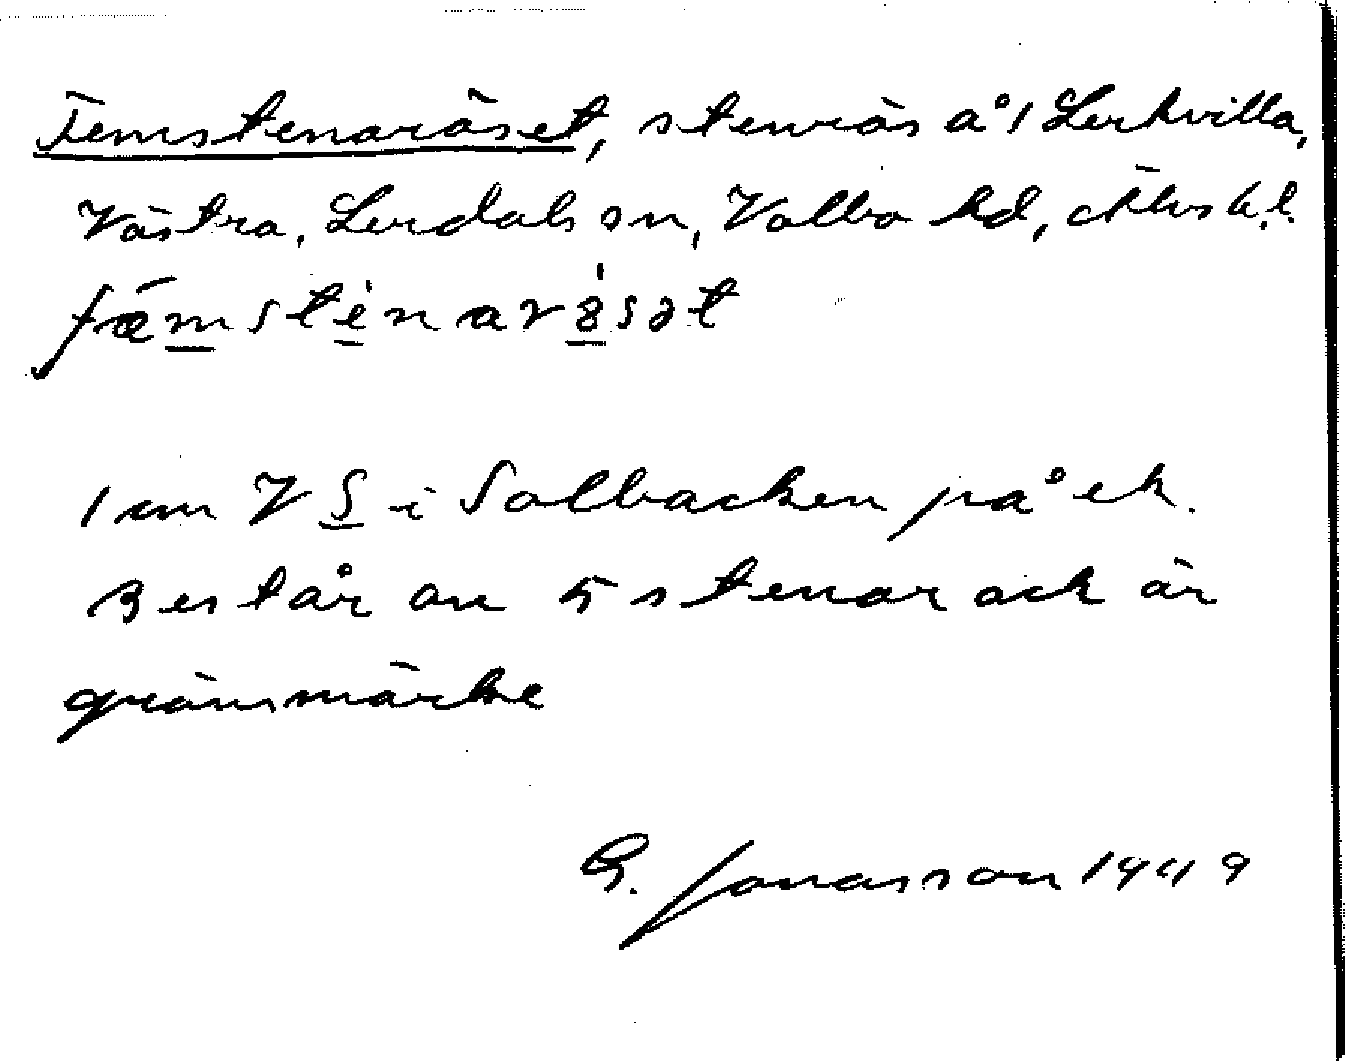 Femstenaröset, stenrös å 1 Lerkvilla,
Västra, Lerdals sn, Valbo hd, Älvsb.l.
fæmstenarösət
1 cm V S i Solbacken på ek.
Består av 5 stenar och är
gränsmärke
G. Jonasson 1949